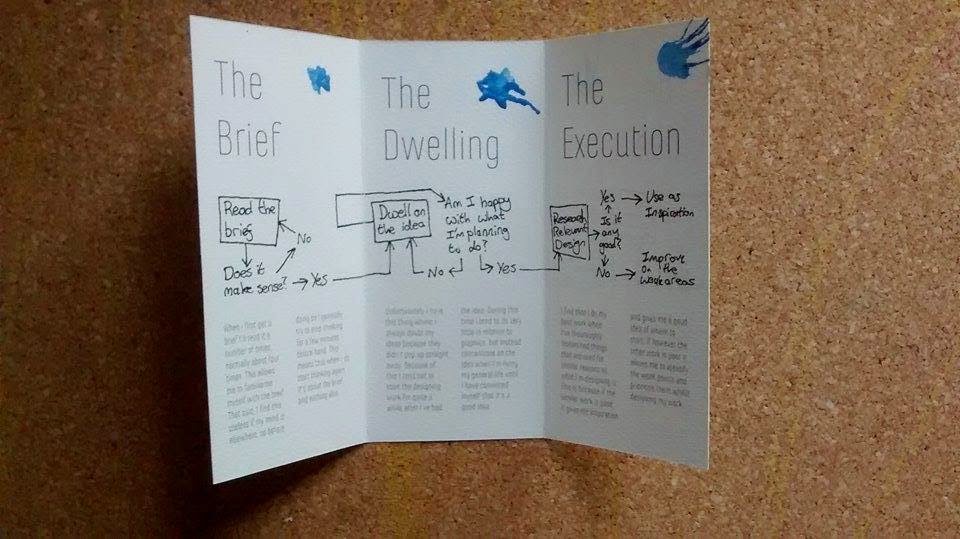 The
Brief
Read the
brief
No
Does it
make sense?
Yes
When I first get a
brief I'll read it a
number of times,
normally about four
times. This allows
me to familiarise
myself with the brief.
That said, I find this
useless if my mind is
elsewhere, so before
doing so I generally
try to stop thinking
for a few minutes
before hand. This
means that when I do
start thinking again
it's about the brief
and nothing else.
The
Dwelling
Dwell on
the idea
Am I happy
with what
I'm planning
to do?
No
Yes
Unfortunately I have
this thing where I
always doubt my
ideas because they
didn't pop up straight
away. Because of
this I tend not to
start the designing
work for quite a
while after I've had
the idea. During this
time I tend to do very
little in relation to
graphics, but instead
concentrate on the
idea when I'm
my general life until
I have convinced
myself that it's a
good idea.
The
Execution
Research
Relevant
Design
Yes
Is it
any
good?
No
Use as
Inspiration
Improve
on the
weak areas
I find that I do my
best work when
I've thoroughly
researched things
that are used for
similar reasons to
what I'm designing is.
This is because if the
similar work is good
it gives me inspiration
and gives me a good
idea of where to
start. If however the
other work is poor it
allows me to identify
the weak points and
improve them while
designing my work.